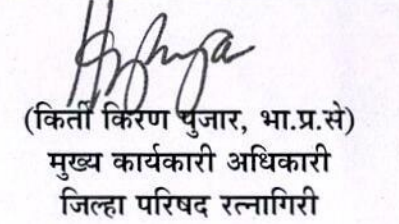 (किर्ती किरण पुजार, भा.प्र.से)
मुख्य कार्यकारी अधिकारी
जिल्हा परिषद रत्नागिरी